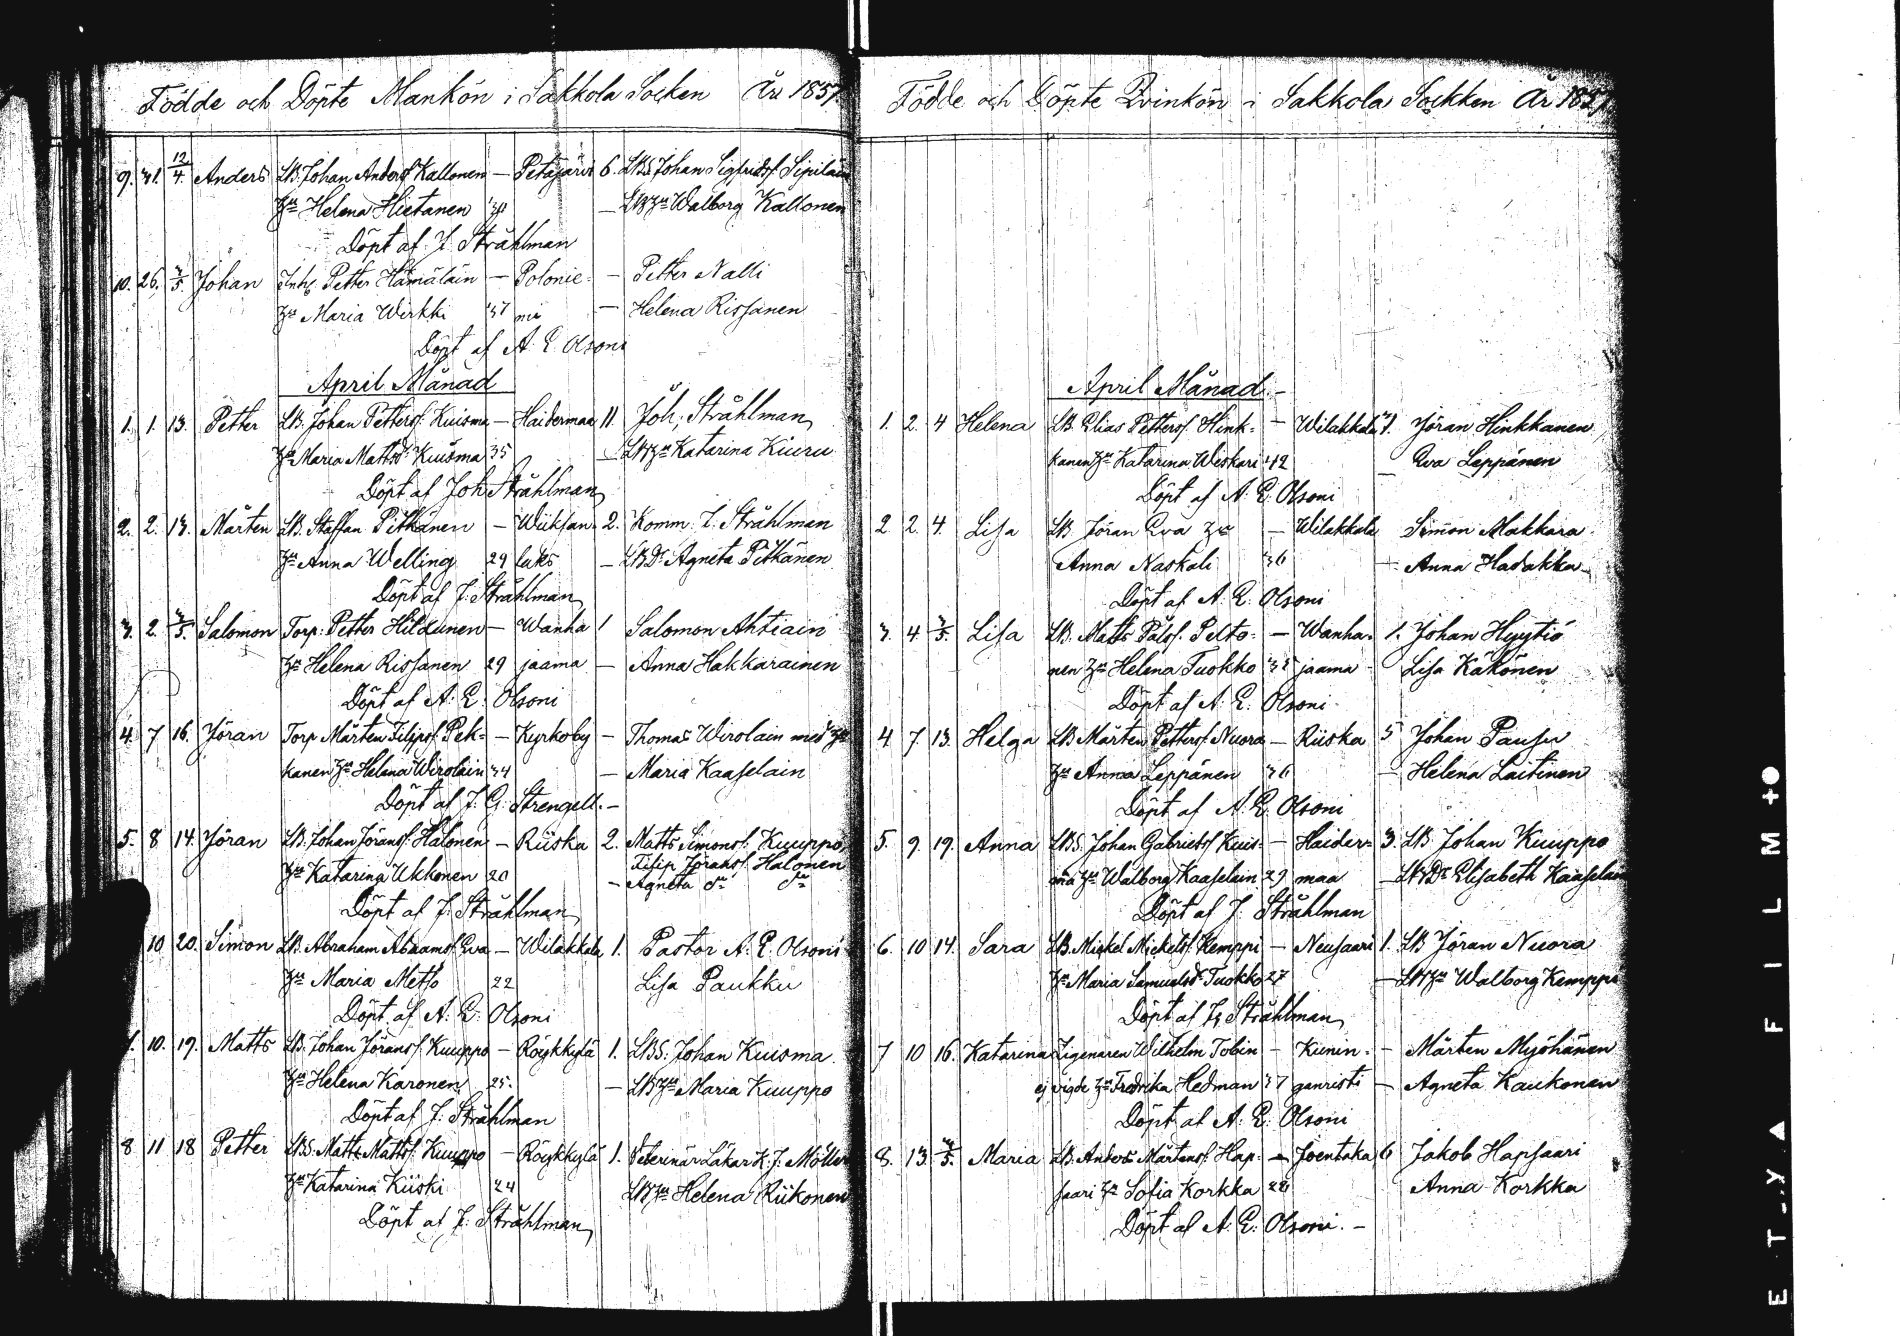 Födde och Döpte Mankön i Sakkola Socken År 1857
9. 31. 12/4 Anders LB. Johan Anderss. Kallonen — Petäjärvi 6. LBS Johan Sigfridss. Sipiläin
Hu Helena Hietanen — LBHu Walborg Kallonen
Döpt af J. Stråhlman
10. 26. 3/5 Johan Inh. Petter Hämäläin — Polonie- — Petter Nalli
Hu Maria Wirkki 37 mi — Helena Rissanen
Döpt af A. E. Olsoni
April Månad
1. 1. 13. Petter LB. Johan Petterss. Kuisma — Haidermaa 11. Joh. Stråhlman
Hu Maria Mattsd. Kuisma 35 — LBHu Katarina Kiuru
Döpt af Joh Stråhlman
2. 2. 13. Mårten LB. Staffan Pitkänen — Wiiksan- 2. Komm. J. Stråhlman
Hu Anna Welling 29 laks — LBDr Agneta Pitkänen
Döpt af J. Stråhlman
3. 2. 3/5. Salomon Torp. Petter Hildunen — Wanha 1 Salomon Ahtiain
Hu Helena Rissanen 29 jaama — Anna Hakkarainen
Döpt af A. E. Olsoni
4. 7 16. Jöran Torp Mårten Filipss. Pek- — Kyrkoby — Thomas Wirolain med Hu
kanen Hu Helena Wirolain 34 — Maria Kaaselain
Döpt af J. G. Strengell. —
5. 8 14. Jöran LB. Johan Jöranss. Halonen — Riiska 2. Matts Simonss. Kuuppo,
Filip Jöranss. Halonen
Hu Katarina Ukkonen 20 — Agneta do do
Döpt af J. Stråhlman
10 20. Simon LB. Abraham Abramss. Eva — Wilakkala 1. Pastor A. E. Olsoni
Hu Maria Metso 22 Lisa Paukku
Döpt af A. E. Olsoni
10. 19. Matts LB. Johan Jöranss. Kuuppo — Röykkylä 1. LBS. Johan Kuisma
Hu Helena Karonen 25. — LBHu Maria Kuuppo
Döpt af J. Stråhlman
8 11 18 Petter LBS. Matts Mattss. Kuuppo — Röykkylä 1. Veterinär Läkar K. J. Möller
Hu Katarina Kiiski 24 LBHu Helena Riikonen
Döpt af J. Stråhlman
Födde och Döpte Qvinkön i Sakkola Sockken År 1857
April Månad. —
1. 2. 4 Helena LB Elias Petterss. Hink- — Wilakkala 3. Jöran Hinkkanen
kanen Hu Katarina Weskari 42 — Eva Leppänen
Döpt af A. E. Olsoni
2 2 4. Lisa LB Jöran Eva Hu — Wilakkala Simon Makkara
Anna Naskali 36 — Anna Hadakka
Döpt af A. E. Olsoni
3. 4 3/5 Lisa LB. Matts Pålss. Pelto- — Wanha- 1. Johan Hyytiö
nen Hu Helena Tuokko jaama — Lisa Käkönen
Döpt af A. E. Olsoni.
4 7. 13. Helga LB Mårten Petterss. Nuora — Riiska 5 Johan Pausu
Hu Anna Leppänen 36 — Helena Laitinen
Döpt af A. E. Olsoni
5. 9. 19. Anna LBS. Johan Gabrielss. Kuis- — Haider- 3. LB. Johan Kuuppo
ma Hu Walborg Kaaselain 29 maa — LBDr Elisabeth Kaaselain
Döpt af J. Stråhlman
6. 10 14. Sara LB. Mickel Mickelss. Kemppi — Neusaari 1. LB Jöran Nuora
Hu Maria Samuelsd. Tuokko 27 — LBHu Walborg Kemppi
Döpt af J. Stråhlman
7 10 16. Katarina Zigenaren Wilhelm Tobin — Kunin- — Mårten Myöhänen
ej vigde Hu Fredrika Hedman 37 ganristi — Agneta Kaukonen
Döpt af A. E. Olsoni
8. 13. 3/5. Maria LB. Anders Mårtenss. Hap- — Joentaka 6 Jakob Hapsaari
saari Hu Sofia Korkka 28 Anna Korkka
Döpt af A. E. Olsoni. —